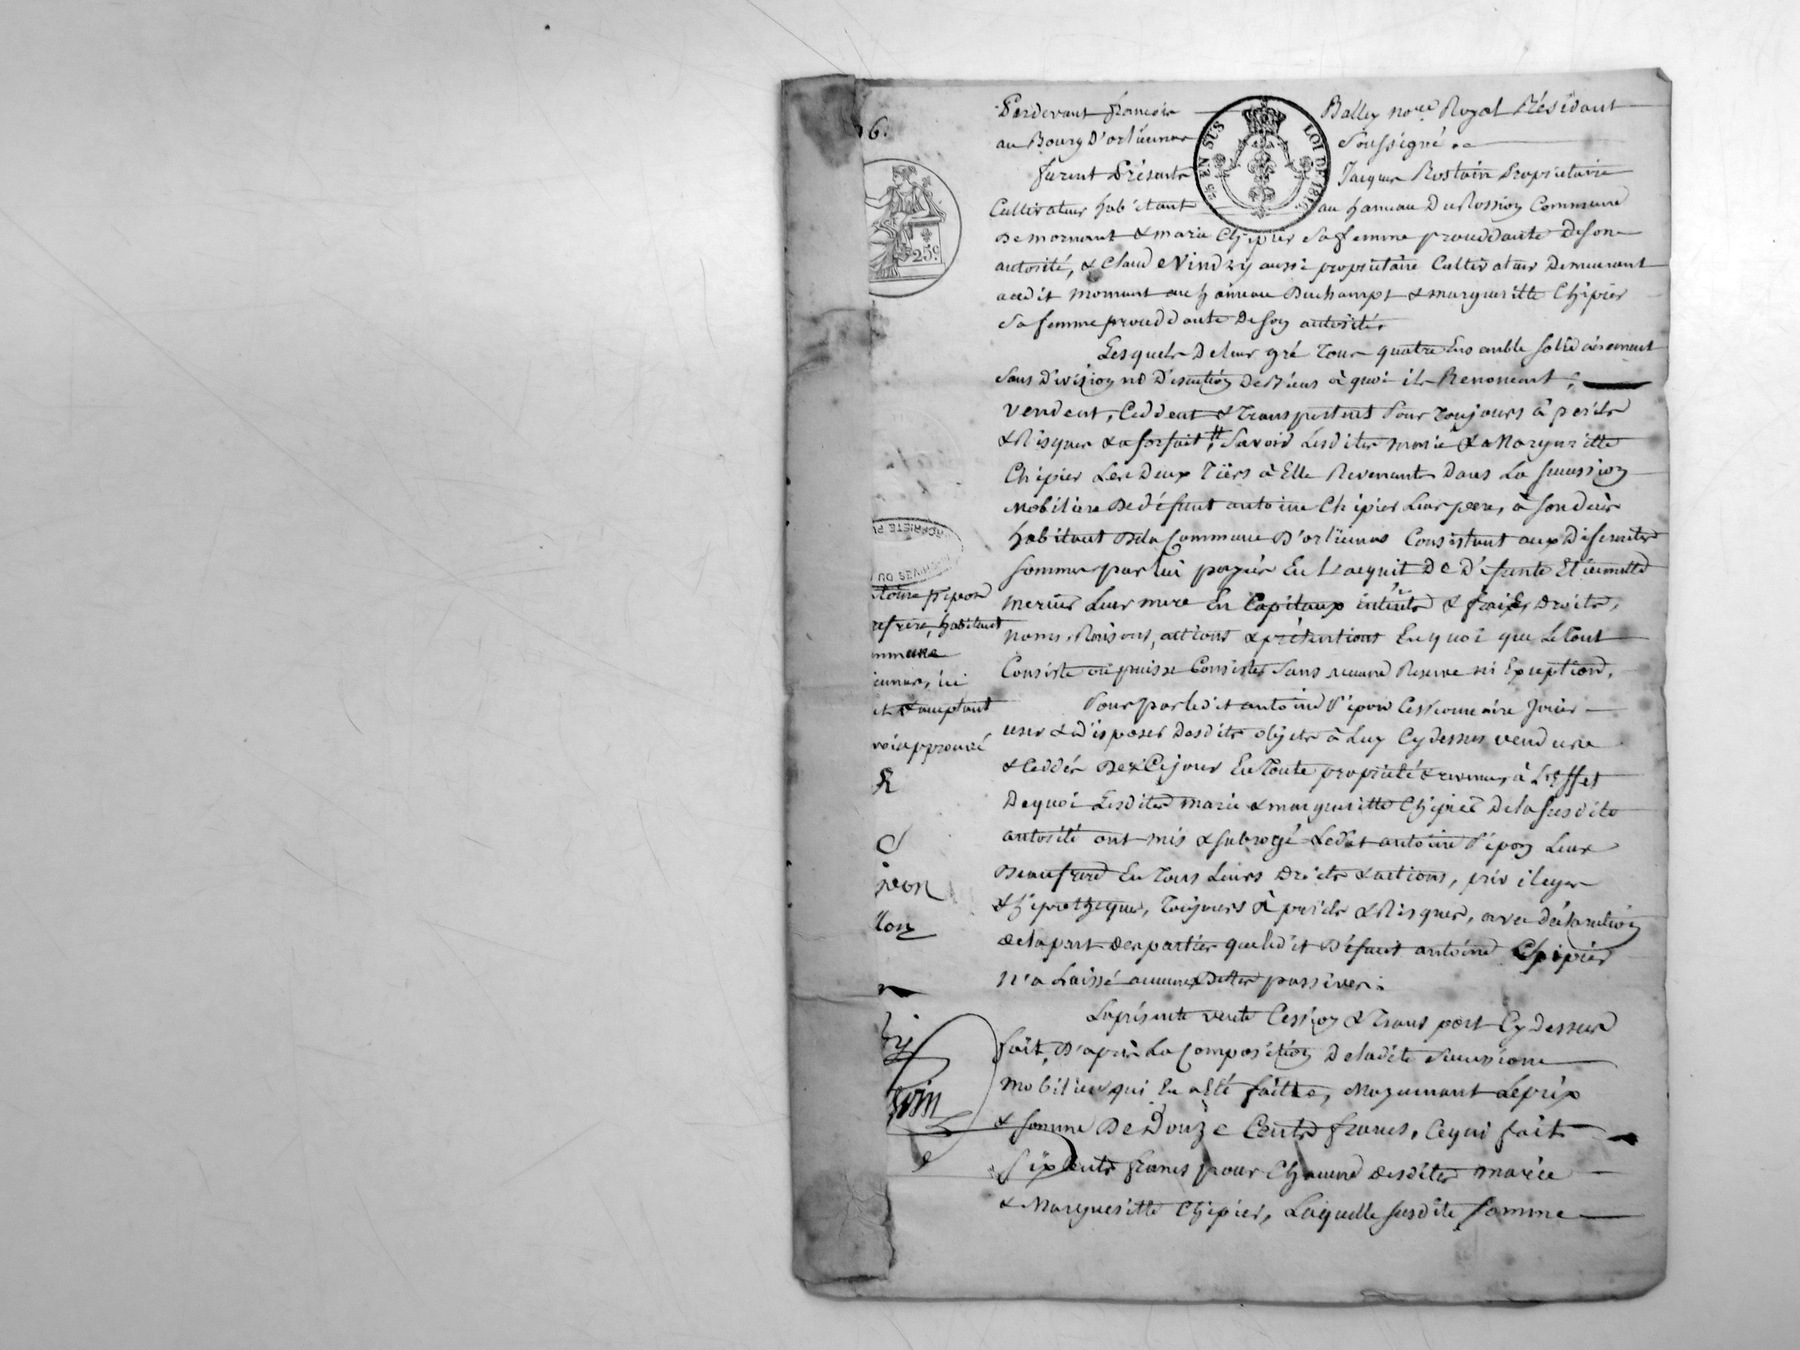 Pardevant françois Balley no.re Royal Résidant
au Bourg D'orliénas Soussigné ..
furent Présents Jacques Rostain Propriétaire
Cultivateur habitant au hameau Du Rossion Commune
De mornant & marie Chipier Sa femme proceddante de son
autorité, & Claude Vindry aussi propriétaire Cultivateur Demeurant
audit Mornant au hameau Duchampt & margueritte Chipier
Sa femme proceddante De son autorité.
Lesquels De leur gré Tous quatre Ensemble solidairement
Sans Division ni Discution De Biens à quoi ils Renoncent,
Vendent, Ceddent & Transportent Pour Toujours à périls
& Risques & a forfait, Savoir Lesdites marie & Margueritte
Chipier Les Deux Tiers à Elle Revenants Dans La succession
Mobiliere De défunt antoine Chipier Leur pere, à Son décès
habitant De la Commune D'orliénas Consistant aux Différentes
sommes par lui payées En L'acquit De Défunte Etiennette
mercier Leur mere En Capitaux intérêts & fraix, Droits,
noms, Raisons, actions & prétentions En quoi que Le tout
Consiste ou puisse Consister Sans aucune Reserve ni Exception.
Pour par ledit antoine Pipon Cessionnaire Jouir
user & Disposer Desdits objets à Luy Cy dessus vendus
& Ceddés De Ce jour En Toute propriété & revenus, à L'effet
De quoi Lesdites marie & margueritte Chipier De la susdite
autorité ont mis & subrogé Ledit antoine Pipon Leur
Beaufrere En Tous Leurs Droits & actions, privileges
& hipotheques, Toujours à périls & Risques, avec déclaration
de la part des parties que ledit Défunt antoine Chipier
N'a Laissé aucunes Dettes passives.
La présente vente Cession & Transport Cy dessus
fait, D'après La Composition De ladite Succession
Mobiliere qui En a Eté faitte, Moyennant Le prix
& somme De Douze Cents francs, Ce qui fait
Six Cents francs pour Chacune desdites marie
& Margueritte Chipier, Laquelle susdite somme
6.
25 EN SUS
LOI DE 1816
25c
habitant
& acceptant
approuvé